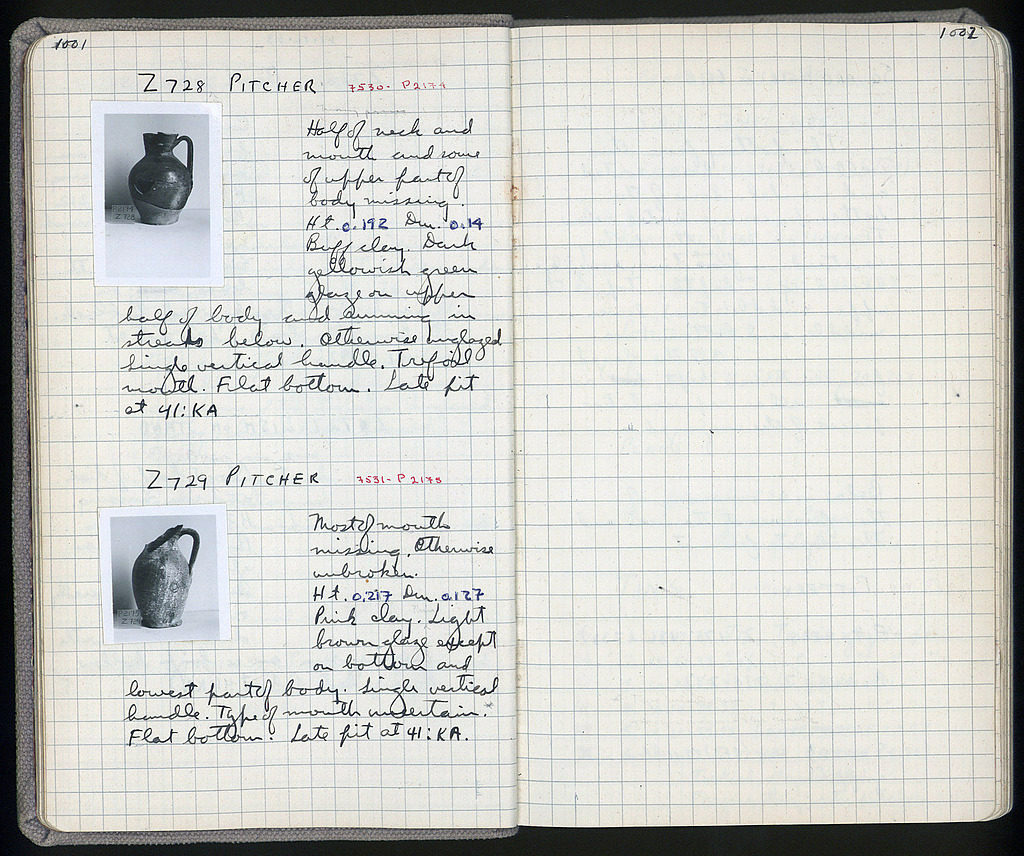 1001
1002
Z 728 PITCHER 7530- P 2174
Half of neck and
mouth and some
of upper part of
body missing.
Ht. 0.192 Dm. 0.14
Buff clay. Dark
yellowish green
glaze on upper
half of body and running in
streaks below. Otherwise unglazed
Single vertical handle. Trefoil
mouth. Flat bottom. Late pit
at 41:KA
P 2174
Z 728
Z 729 PITCHER 7531- P 2175
Most of mouth
missing. Otherwise
unbroken.
Ht. 0.217 Dm. 0.127
Pink clay. Light
brown glaze except
on bottom and
lowest part of body. Single vertical
handle. Type of mouth uncertain.
Flat bottom. Late pit at 41:KA.
Z 729